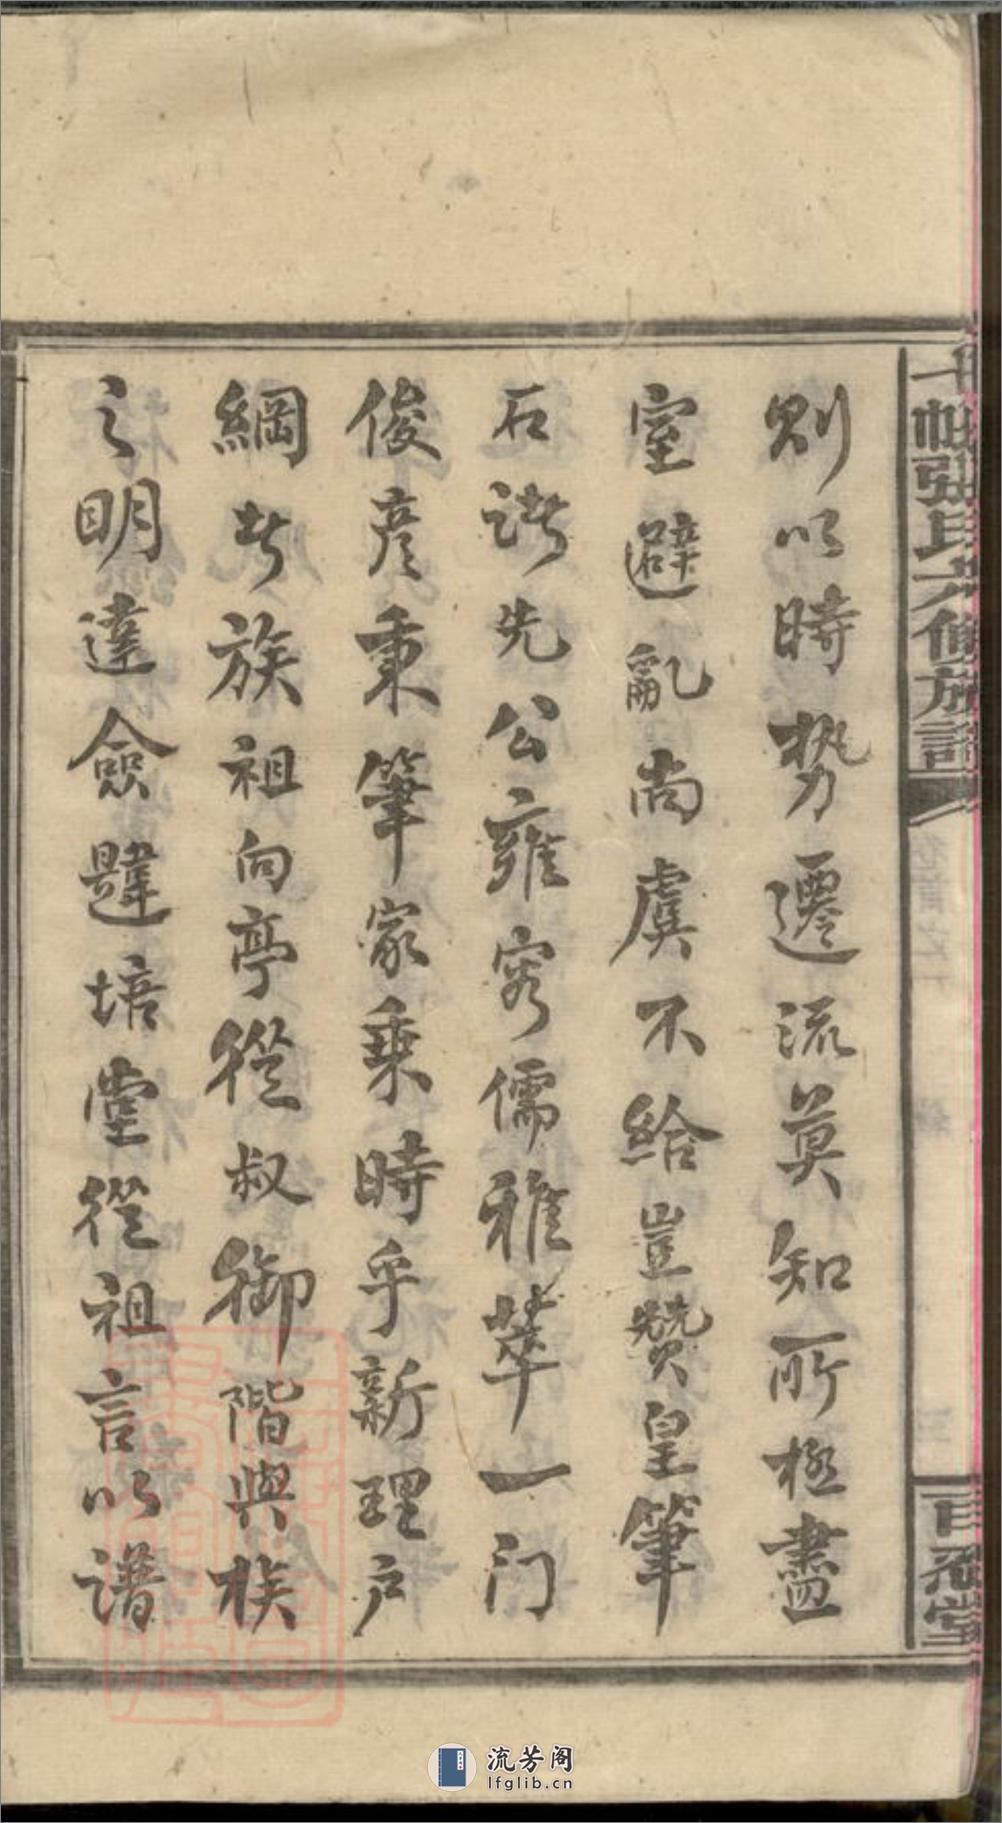 則以時勢遷流莫知所極盡
室避亂尚虞不給豈贊皇筆
石諸先公雍容儒雅萃一門
俊彥秉筆家乘時乎新理户
綱者族祖向亭從叔御階與族
之明達僉韙培堂從祖言以譜
張氏六修族譜
百忍堂
流芳阁
lfglib.cn